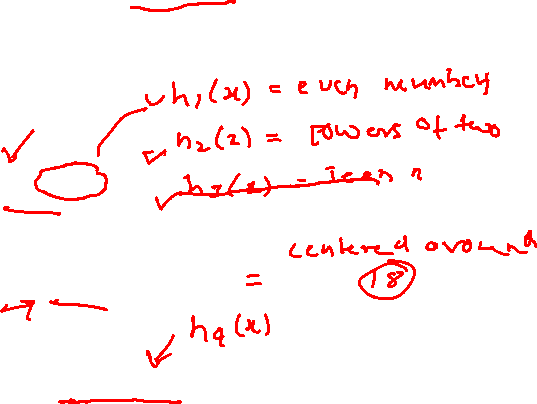 h₁(x) = even numbers
h₂(x) = powers of two
h₃(x) = Teen
= centered around 18
h₄(x)